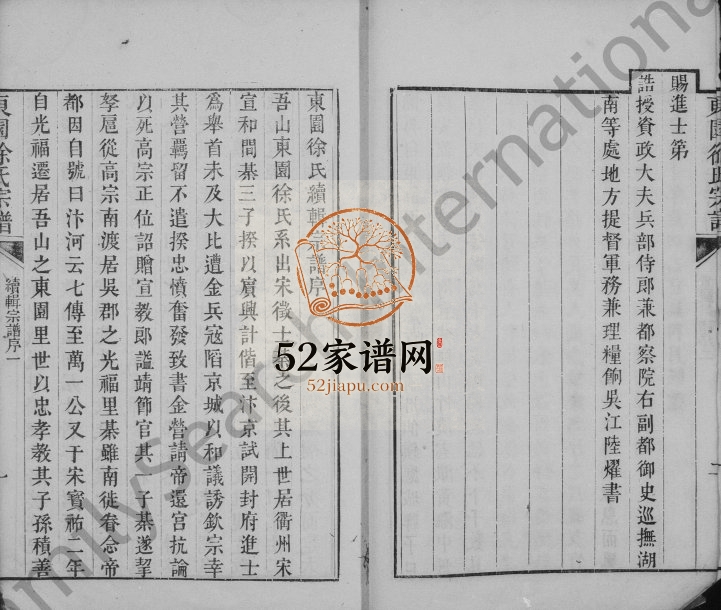 東園徐氏宗譜
賜進士第
誥授資政大夫兵部侍郎兼都察院右副都御史巡撫湖
南等處地方提督軍務兼理糧餉吳江陸燿書
二
東園徐氏續輯宗譜序
吾山東園徐氏系出宋徵士之後其上世居衢州宋
宣和間棊三子揆以賓興計偕至汴京試開封府進士
為舉首未及大比遭金兵寇陷京城以和議誘欽宗幸
其營羈留不遣揆忠憤奮發致書金營請帝還宮抗論
以死高宗正位詔贈宣教郎諡靖節官其一子棊遂挈
孥扈從高宗南渡居吳郡之光福里棊雖南徙眷念帝
都因自號曰汴河云七傳至萬一公又于宋寳祐二年
自光福遷居吾山之東園里世以忠孝教其子孫積善
東園徐氏宗譜
續輯宗譜序一
一
52家谱网
52jiapu.com
FamilySearch International